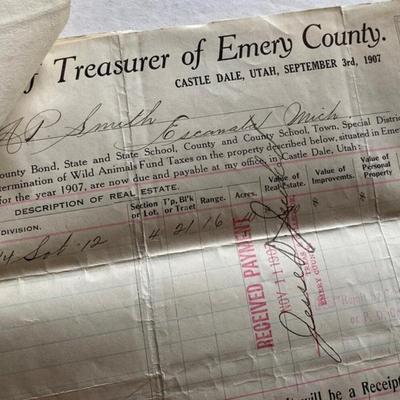 Treasurer of Emery County.
CASTLE DALE, UTAH, SEPTEMBER 3rd, 1907
A P Smith Escanaba Mich
County Bond, State and State School, County and County School, Town, Special Distric
termination of Wild Animals Fund Taxes on the property described below, situated in Eme
for the year 1907, are now due and payable at my office, in Castle Dale, Utah:
DESCRIPTION OF REAL ESTATE.
DIVISION.
Section or Lot.
T'p, Bl'k or Tract
Range.
Acres.
Value of Real Estate.
Value of Improvements.
Value of Personal Property
Lot 12 4 21 16
$ $ $
RECEIVED PAYMENT
NOV 11 190
EMERY COUNT
it will be a Receip